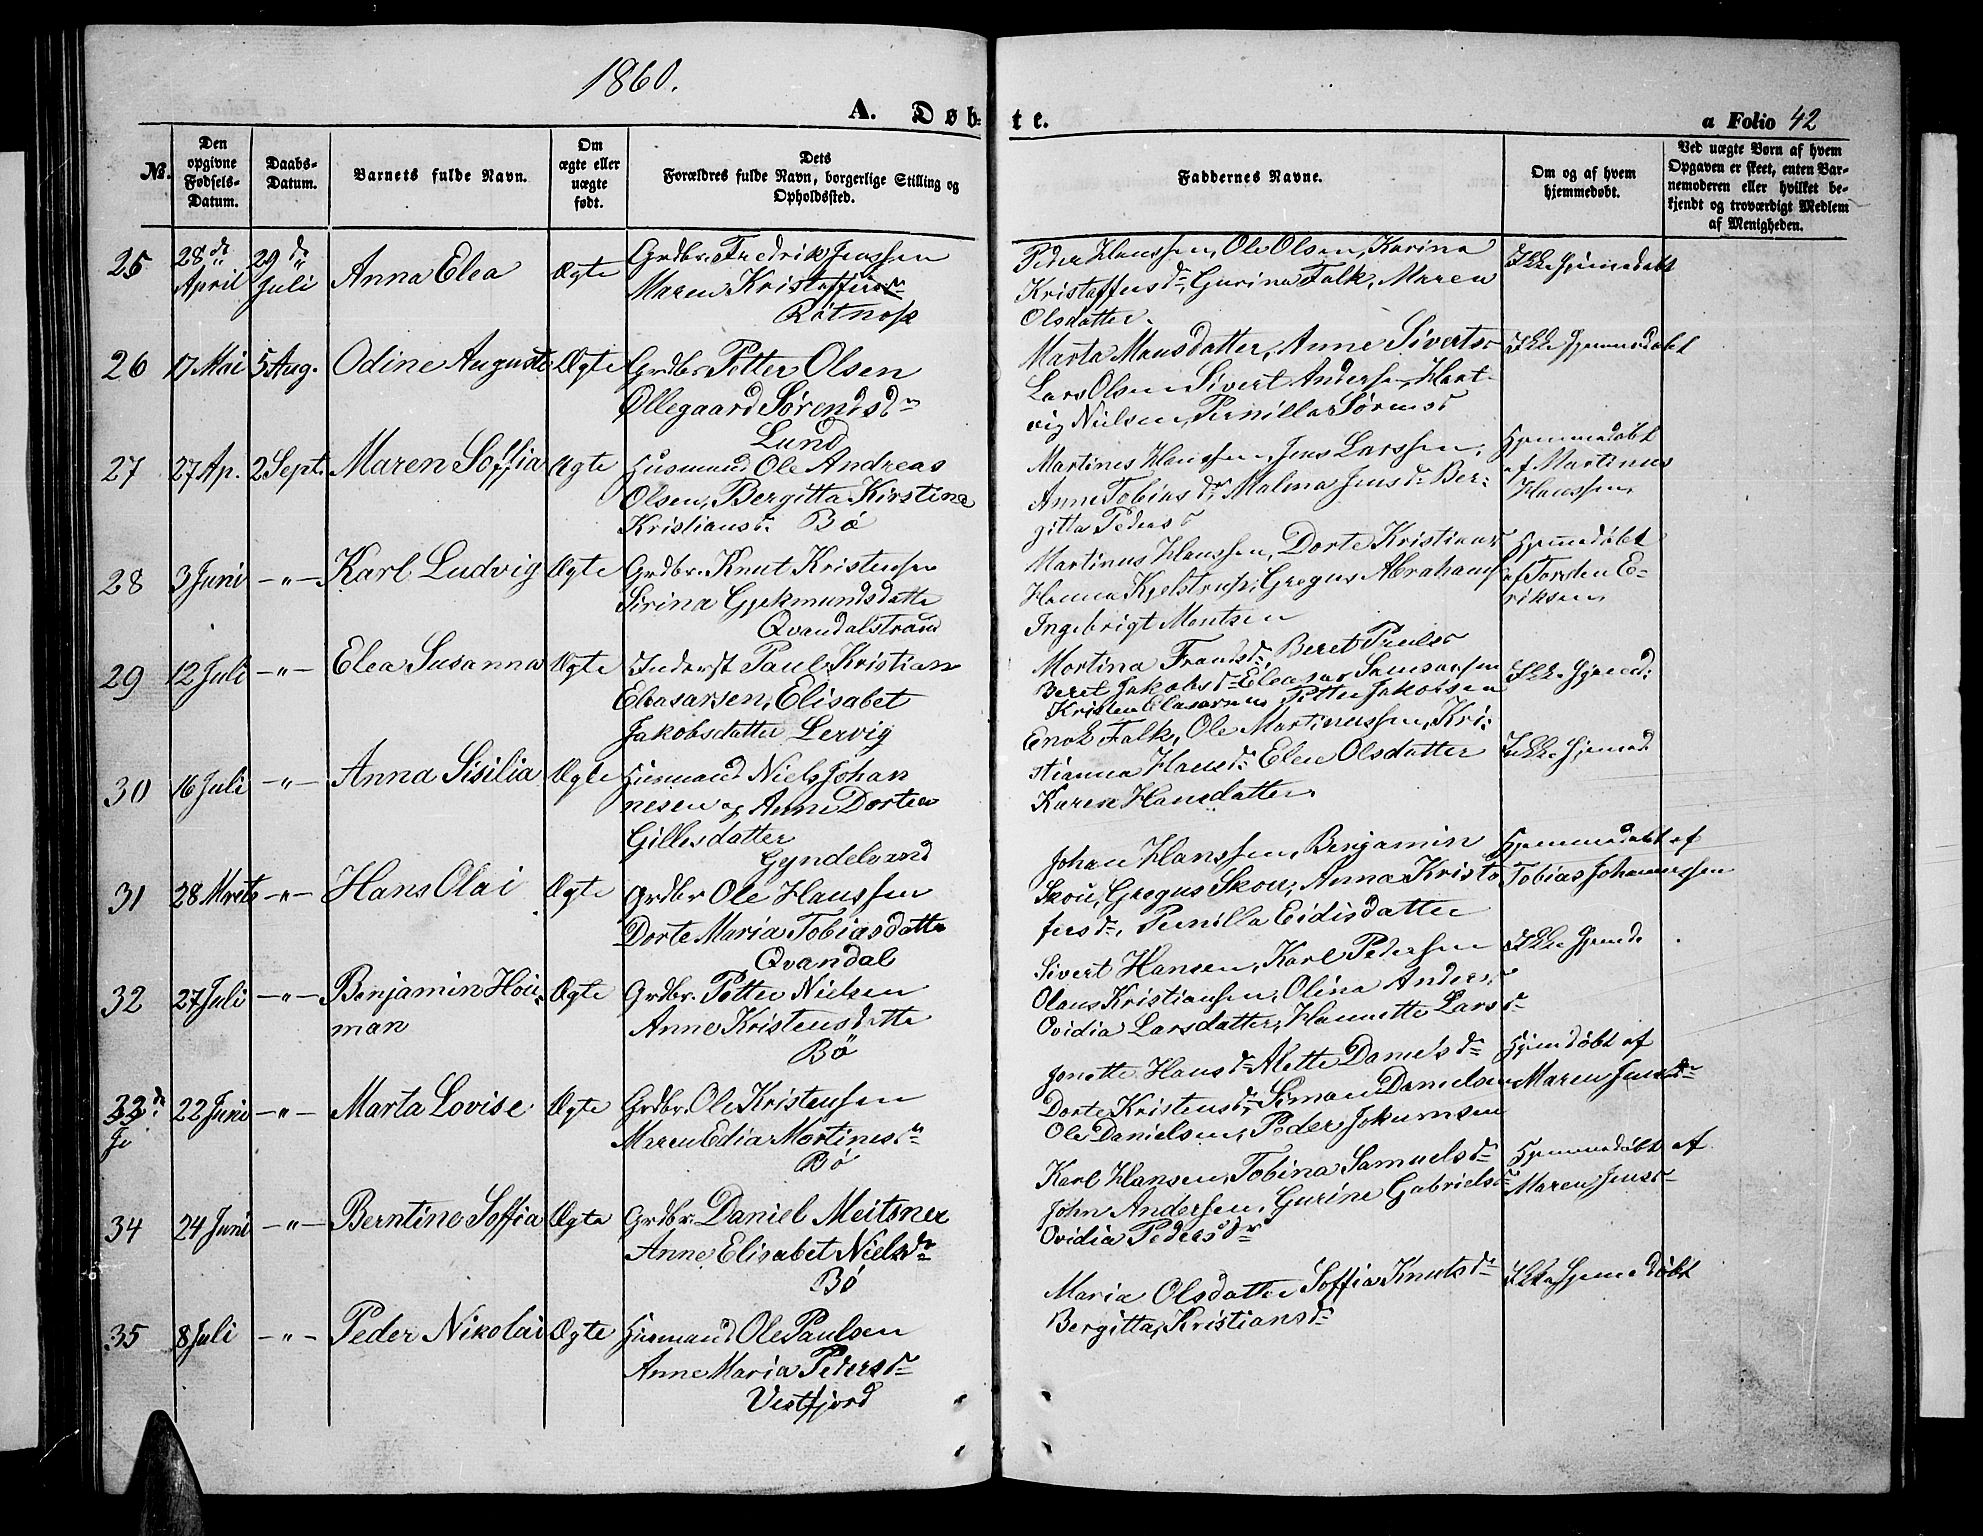 1860.
A. Døb-
te.
a Folio 42
№.
Den opgivne Fødsels-Datum.
Daabs-Datum.
Barnets fulde Navn.
Om ægte eller uægte født.
Dets Forældres fulde Navn, borgerlige Stilling og Opholdssted.
Faddernes Navne.
Om og af hvem hjemmedøbt.
Ved uægte Børn af hvem Opgaven er skeet, enten Barnemoderen eller hvilket bekjendt og troværdigt Medlem af Menigheden.
25 28de April 29de Juli Anna Elea Ægte Grdbr. Fredrik Jenssen
Maren Kristoffersdr
Peder Hanssen, Ole Olsen, Karina
Kristoffersdr, Gurina Falk, Maren
Olsdatter.
Ikke Hjemmedøbt
26 17 Mai 5 Aug. Odine Auguste Ægte Grdbr. Petter Olsen
Øllegaard Sørendsdr
Lund
Marta Monsdatter, Anne Siverts
Lars Olsen Sivert Andersen, Hart-
vig Nielsen, Pernilla Sørensd
Ikke Hjemmedøbt
27 27 Ap. 2 Sept. Maren Soffia Ægte Husmand Ole Andreas
Olsen, Bergitta Kirstine
Kristiansd. Bø
Martinus Hanssen, Jens Larssen,
Anne Tobiasdr, Malina Jensdr Ber-
gitta Pedersd
Hjemmedøbt
af Martinus
Hanssen,
28 3 Juni -"- Karl Ludvig Ægte Grdbr. Knut Kristensen
Sirina
Qvandalstrand
Martinus Hanssen, Dorte Kristians
Hanna Kjelstrup, Gregus Abrahams
Ingebrigt Montsen
Hjemmedøbt
af Torsten E-
riksen,
29 12 Juli -"- Elea Susanna Ægte Inderst Paul Kristian
Eleasarsen, Elisabet
Jakobsdatter Lervig
Mortina Frandsd, Beret Paulsd
Beret Jakobsdr Eleasar
Kristen Elasarsen Petter Jakobsen
Ikke Hjemd:
30 16 Juli -"- Anna Sisilia Ægte Husmand Niels Johan
nesen og Anne Dortea
Gillesdatter
Enok Falk, Ole Martinussen, Kri-
stianna Hansdr Elen Olsdatter
Karen Hansdatter.
Ikke Hjemd
31 28 Marts -"- Hans Olai Ægte Grdbr Ole Hanssen
Dorte Maria Tobiasdatte
Qvandal
Johan Hanssen, Benjamin
Skou, Gregus Skou, Anna Kristo
fersdr, Pernilla Eidisdatter
Hjemmedøbt af
Tobias Johannessen
32 27 Juli -"- Benjamin Hou-
man Ægte Grdbr. Petter Nielsen
Anne Kristensdatte
Bø
Sivert Hansen, Karl Pedersen
Olaus Kristiansen, Olina Anders,
Ovidia Larsdatter, Hannette Larsd
Ikke Hjemd
33 22 Juni -"- Marta Lovise Ægte Grdbr. Ole Kristensen
Maren Edia Mortinesdr
Bø
Jonette Hansdr Alette Danielsdr
Dorte Kristensdr, Simon Danielsen
Ole Danielsen, Peder Jokumsen
Hjemdøbt af
Maren Jensdr
34 24 Juni -"- Berntine Soffia Ægte Grdbr. Daniel Meitsner
Anne Elisabet Nielsdr
Bø
Karl Hansen, Tobina Samuelsdr
John Andersen, Gurine Gabrielsd
Ovidia Pedersdr
Hjemmedøbt af
Maren Jensdr
35 8 Juli -"- Peder Nikolai Ægte Husmand Ole Paulsen
Anne Maria Pedersdr
Vestfjord
Maria Olsdatter Soffia Knutsdr
Bergitta, Kristiansdr
Ikke Hjemmedøbt